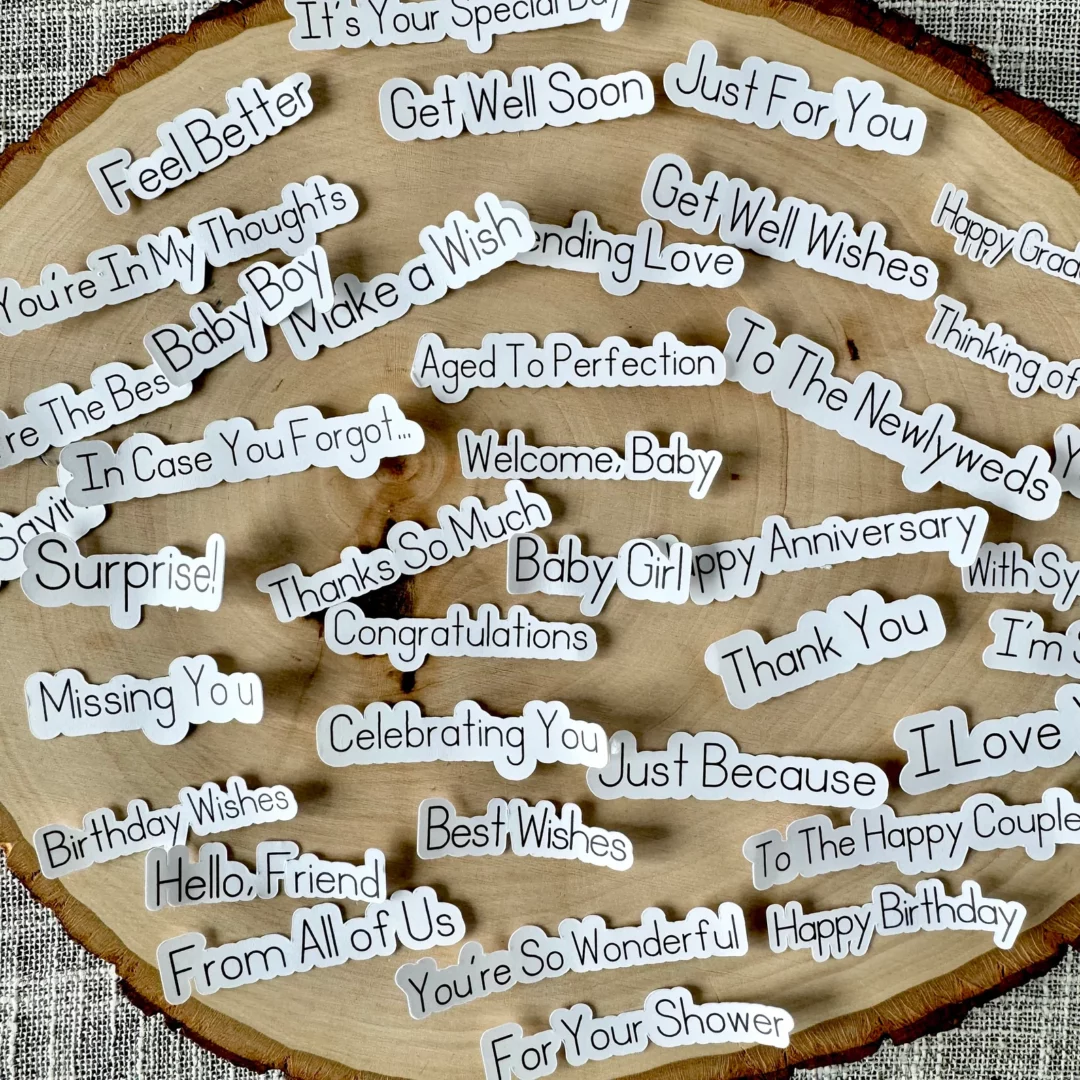 It's Your Special Day
Feel Better
Get Well Soon
Just For You
You're In My Thoughts
Make a Wish
ending Love
Get Well Wishes
Happy Grad
Baby Boy
Thinking of
Aged To Perfection
To The Newlyweds
re The Bes
In Case You Forgot...
Welcome, Baby
Y
Surprise!
Thanks So Much
Baby Girl
ppy Anniversary
With Sy
Congratulations
Thank You
I'm
Missing You
Celebrating You
Just Because
I Love
Birthday Wishes
Best Wishes
To The Happy Couple
Hello, Friend
From All of Us
You're So Wonderful
Happy Birthday
For Your Shower